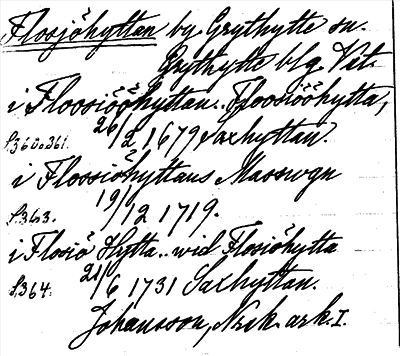 Flosjöhyttan by Grythytte sn.
Grythytte blg. Vst.
i Floosiööhyttan.. Floosiööhytta,
S.360 o 361. 26/2 1679 Saxhyttan.
i Flossiöhyttans Masswgn
S.363. 19/12 1719.
i Flosiö Hytta.. wid Flosiöhytta
S.364. 21/6 1731 Saxhyttan.
Johansson, Nrek. ark. I.